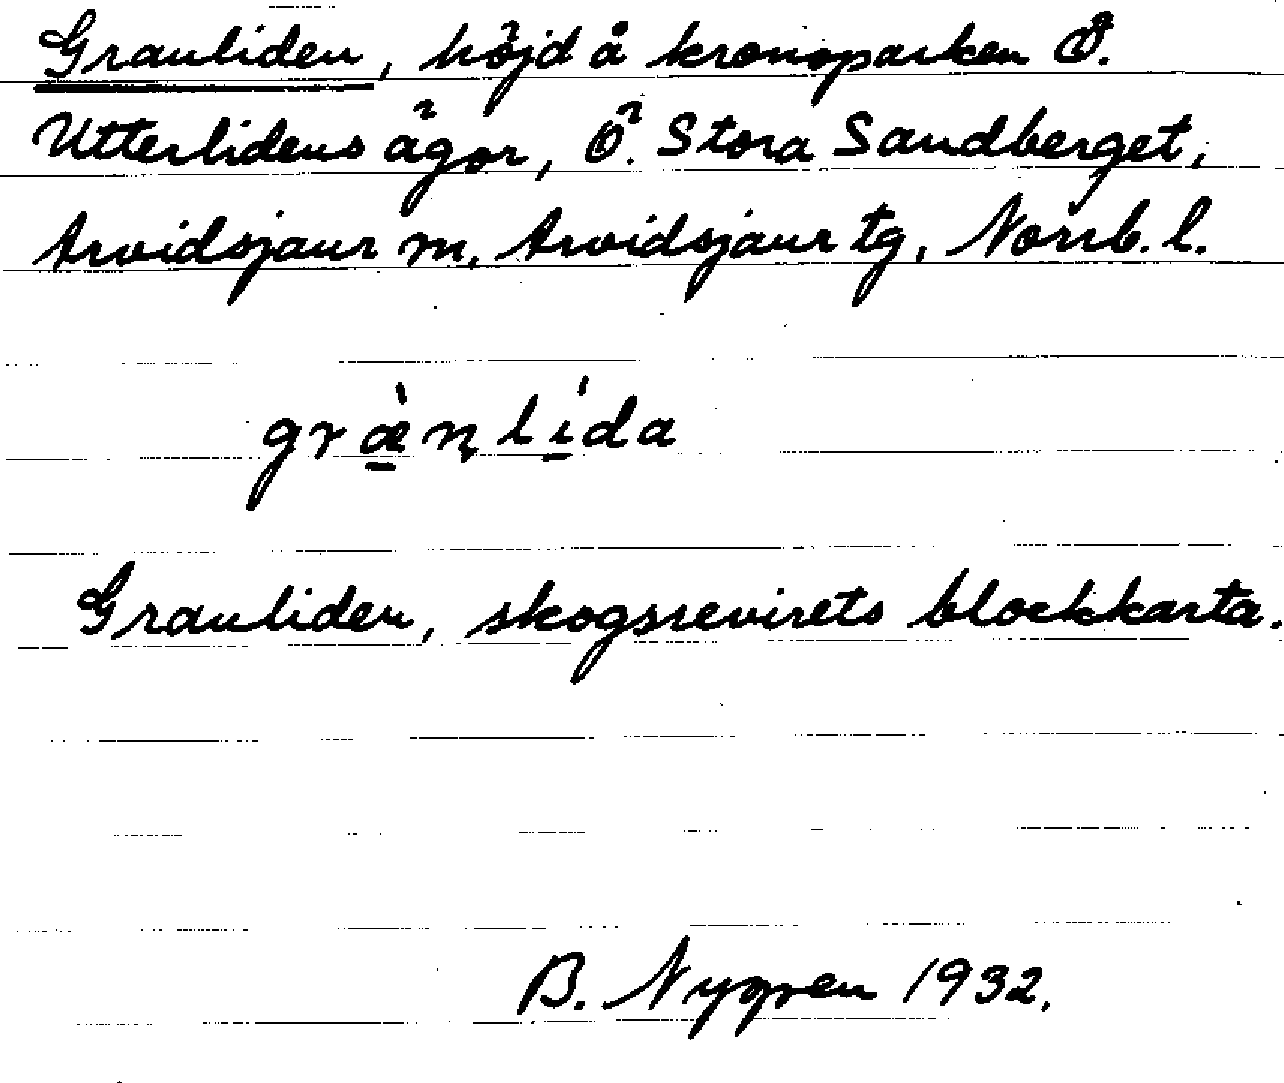 Granliden, höjd å kronoparken Ö.
Utterlidens ägor, Ö. Stora Sandberget,
Arvidsjaur m, Arvidsjaur tg, Norrb. l.
græ̀ṇlída
Granliden, skogsrevirets blockkarta.
B. Nygren 1932.